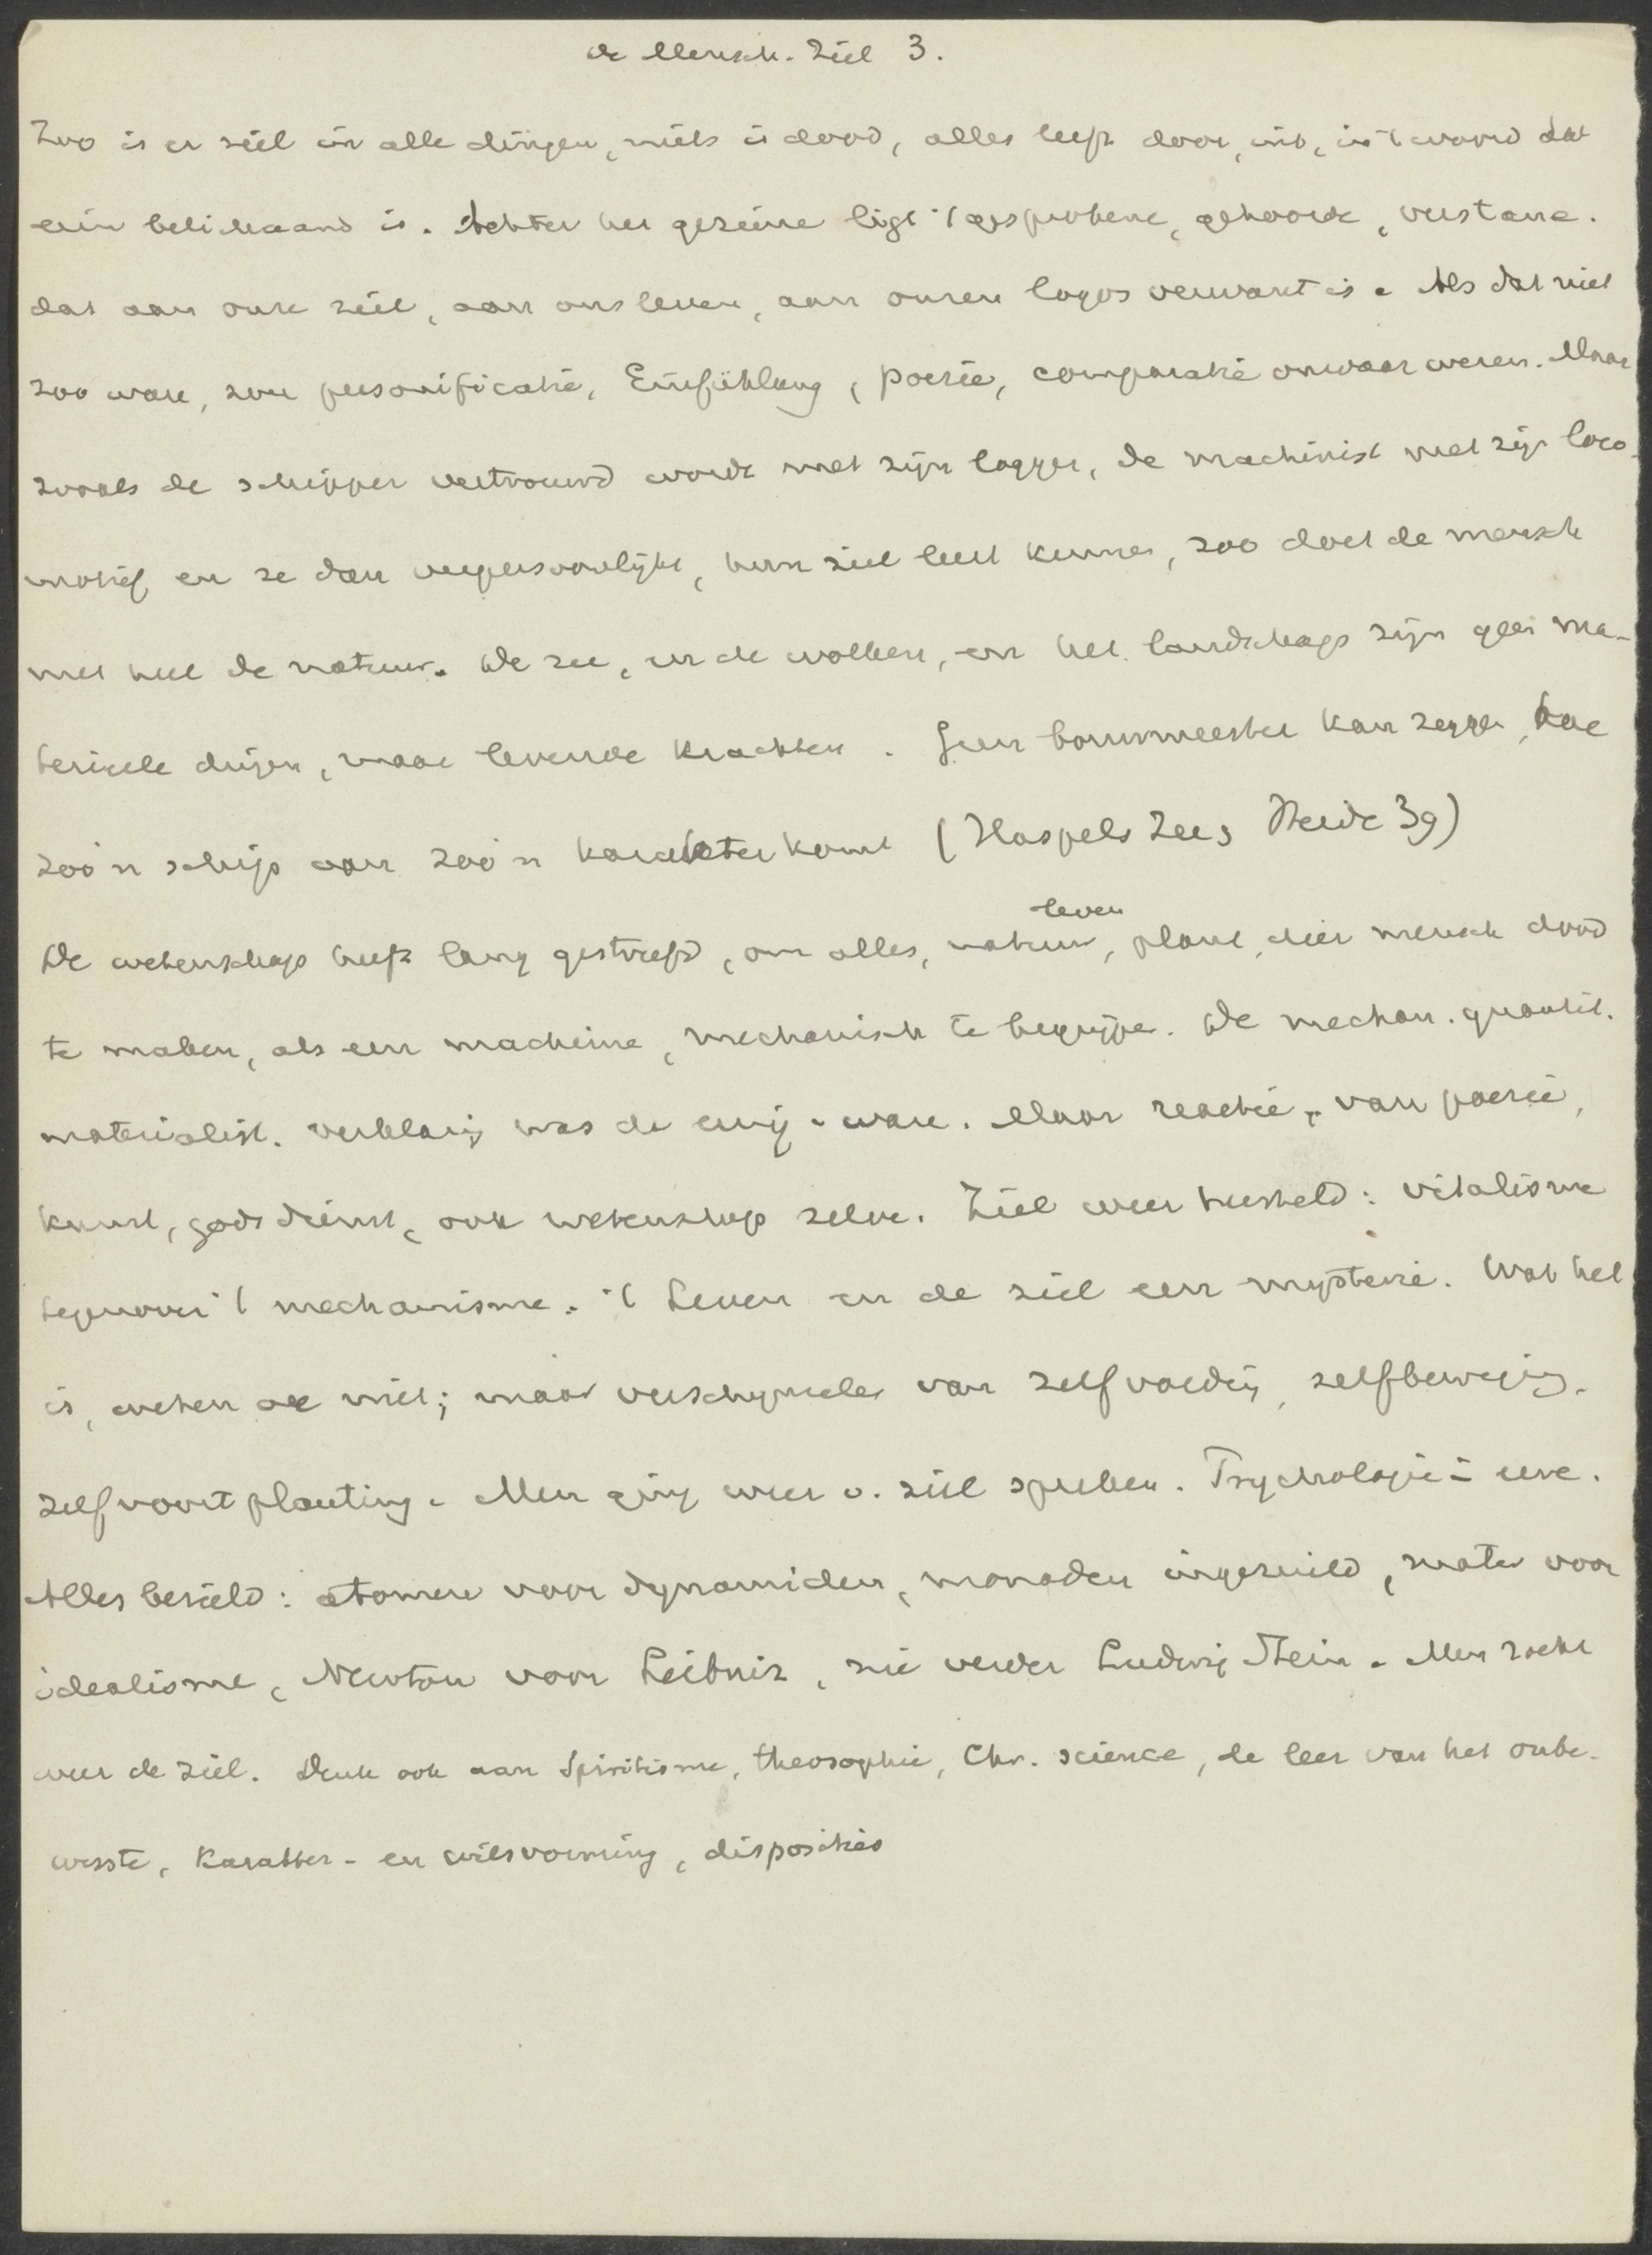 de Mensch. Ziel 3.
Zoo is er ziel in alle dingen, niets is dood, alles leeft door, uit, in 't woord dat
erin belichaamd is. Achter het geziene ligt 't gesprokene, gehoorde, verstane.
dat aan onze ziel, aan ons leven, aan onzen logos verwant is. Als dat niet
zoo ware, zou personificatie, Einfühlung, poezie, comparatie onwaar wezen. Maar
zooals de schipper vertrouwd wordt met zijn logger, de machinist met zijn loco-
motief en ze dan verpersoonlijkt, hun ziel leert kennen, zoo doet de mensch
met heel de natuur. De zee, en de wolken, en het landschap zijn geen ma-
terieele dingen, maar levende krachten. Geen bouwmeester kan zeggen, hoe
zoo'n schip aan zoo'n karakter komt (Haspels Zee, Heide 39)
De wetenschap heeft lang gestreefd, om alles, natuur, leven, plant, dier mensch dood
te maken, als een machine, mechanisch te begrijpen. De mechan. quantit.
materialist. verklaring was de eenig-ware. Maar reactie, van poezie,
kunst, godsdienst, ook wetenschap zelve. Ziel weer hersteld: vitalisme
tegenover 't mechanisme. 't Leven en de ziel een mysterie. Wat het
is, weten we niet; maar verschijnselen van zelfvoeding, zelfbeweging,
zelfvoortplanting. Men ging weer v. ziel spreken. Psychologie = eere.
Alles bezield: atomen voor dynamiden, monaden ingeruild, mater voor
idealisme, Newton voor Leibniz, zie verder Ludwig Stein. Men zocht
weer de ziel. Denk ook aan Spiritisme, theosophie, Chr. science, de leer van het onbe-
wuste, karakter- en wilsvorming, disposities